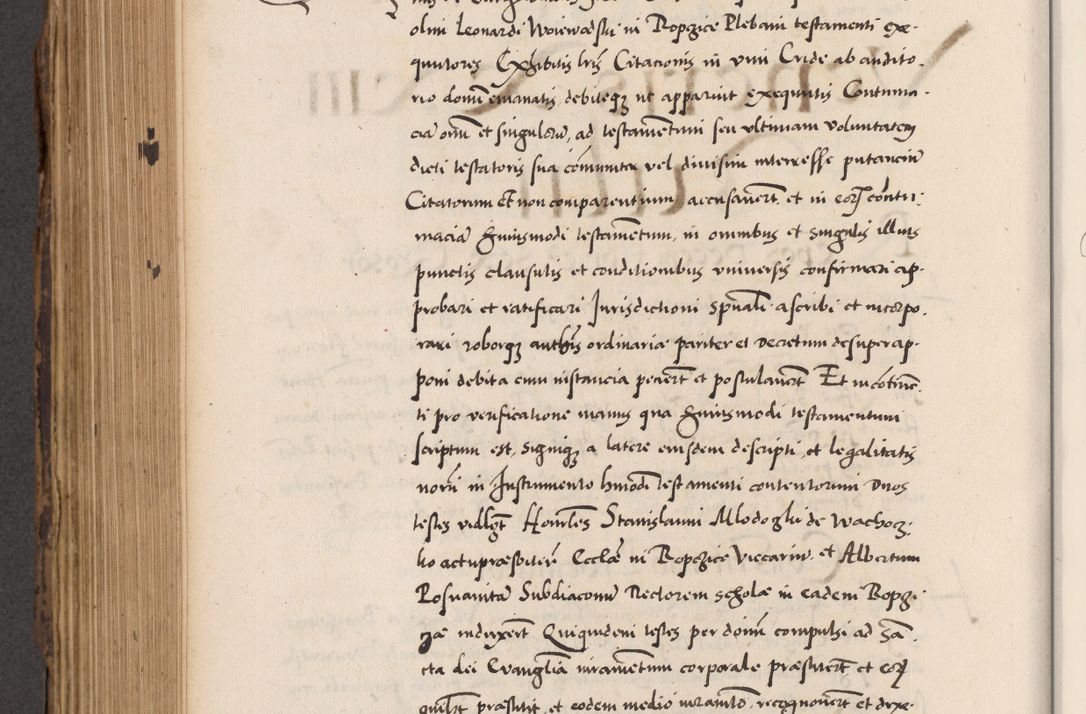 olim Leonardi Woiewodski in Bopczice Plebani testamenti exe-
quutores Exhibitis lris Citacionis in vim Cride ab audito-
rio domi emanatis, debiteqz ut apparuit exequutis Contuma-
cia omi et singulorũ, ad testamentum seu ultimam voluntatem
dicti testatoris sua cõmuniter vel divisim interresse putanciũ
Citatorum et non comparentium accusavert, et in eorz contu-
maciã huiusmodi testamentum, in omnibus et singulis illius
punctis clausulis et conditionibus vniversis confirmari ap-
probari et ratificari Jurisdictioni spuali ascribi et incorpo-
rari roborqz authis ordinariæ pariter et Decretum desuper ap-
poni debita cum instancia pecierũt et postulaverũt Et incõtinẽ-
ti pro verificatione manus qua huiusmodi testamentum
scriptum est, signiqz a latere eiusdem descripti, et legalitatis
notrũ in Instrumento hmõdi testamenti contentorum Duos
testes vidlzt Honbles Stanislaum Mlodoghi de Wachocz-
ko actu præsbiterũ Ecclæ in Bopczice Viccarium et Albertum
Rosvanita Subdiaconum Rectorem scholæ in eadem Bopczi-
czæ induxert Quiquidem testes per domi compulsi ad Sã-
cta dei Evanglia iuramentum corporale præstiterũt et eorz
quilzt præstitit, et eodem medio iuramto, recognoverũt et dixe-